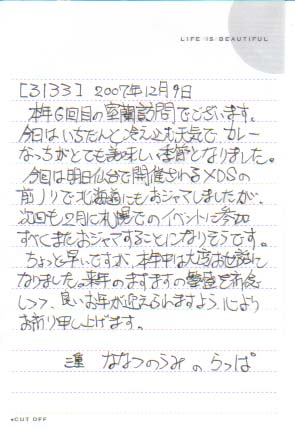 LIFE IS BEAUTIFUL
[3133] 2007年12月9日
本年6回目の室蘭訪問でございます。
今日はいちだんと冷え込む天気で、カレー
なっちがとても美味しい季節となりました。
今回は明日仙台で開催されるXDSの
前ノリで北海道にもおジャマしましたが、
次回も2月に札幌でのイベントに参加
すべくまたおジャマすることになりそうです。
ちょっと早いですが、本年中は大変お世話に
なりました。来年のますますの繁盛を祈念
しつつ、良いお年が迎えられますよう、心より
お祈り申し上げます。
三重 ななつのうみ の らっぱ
•CUT OFF